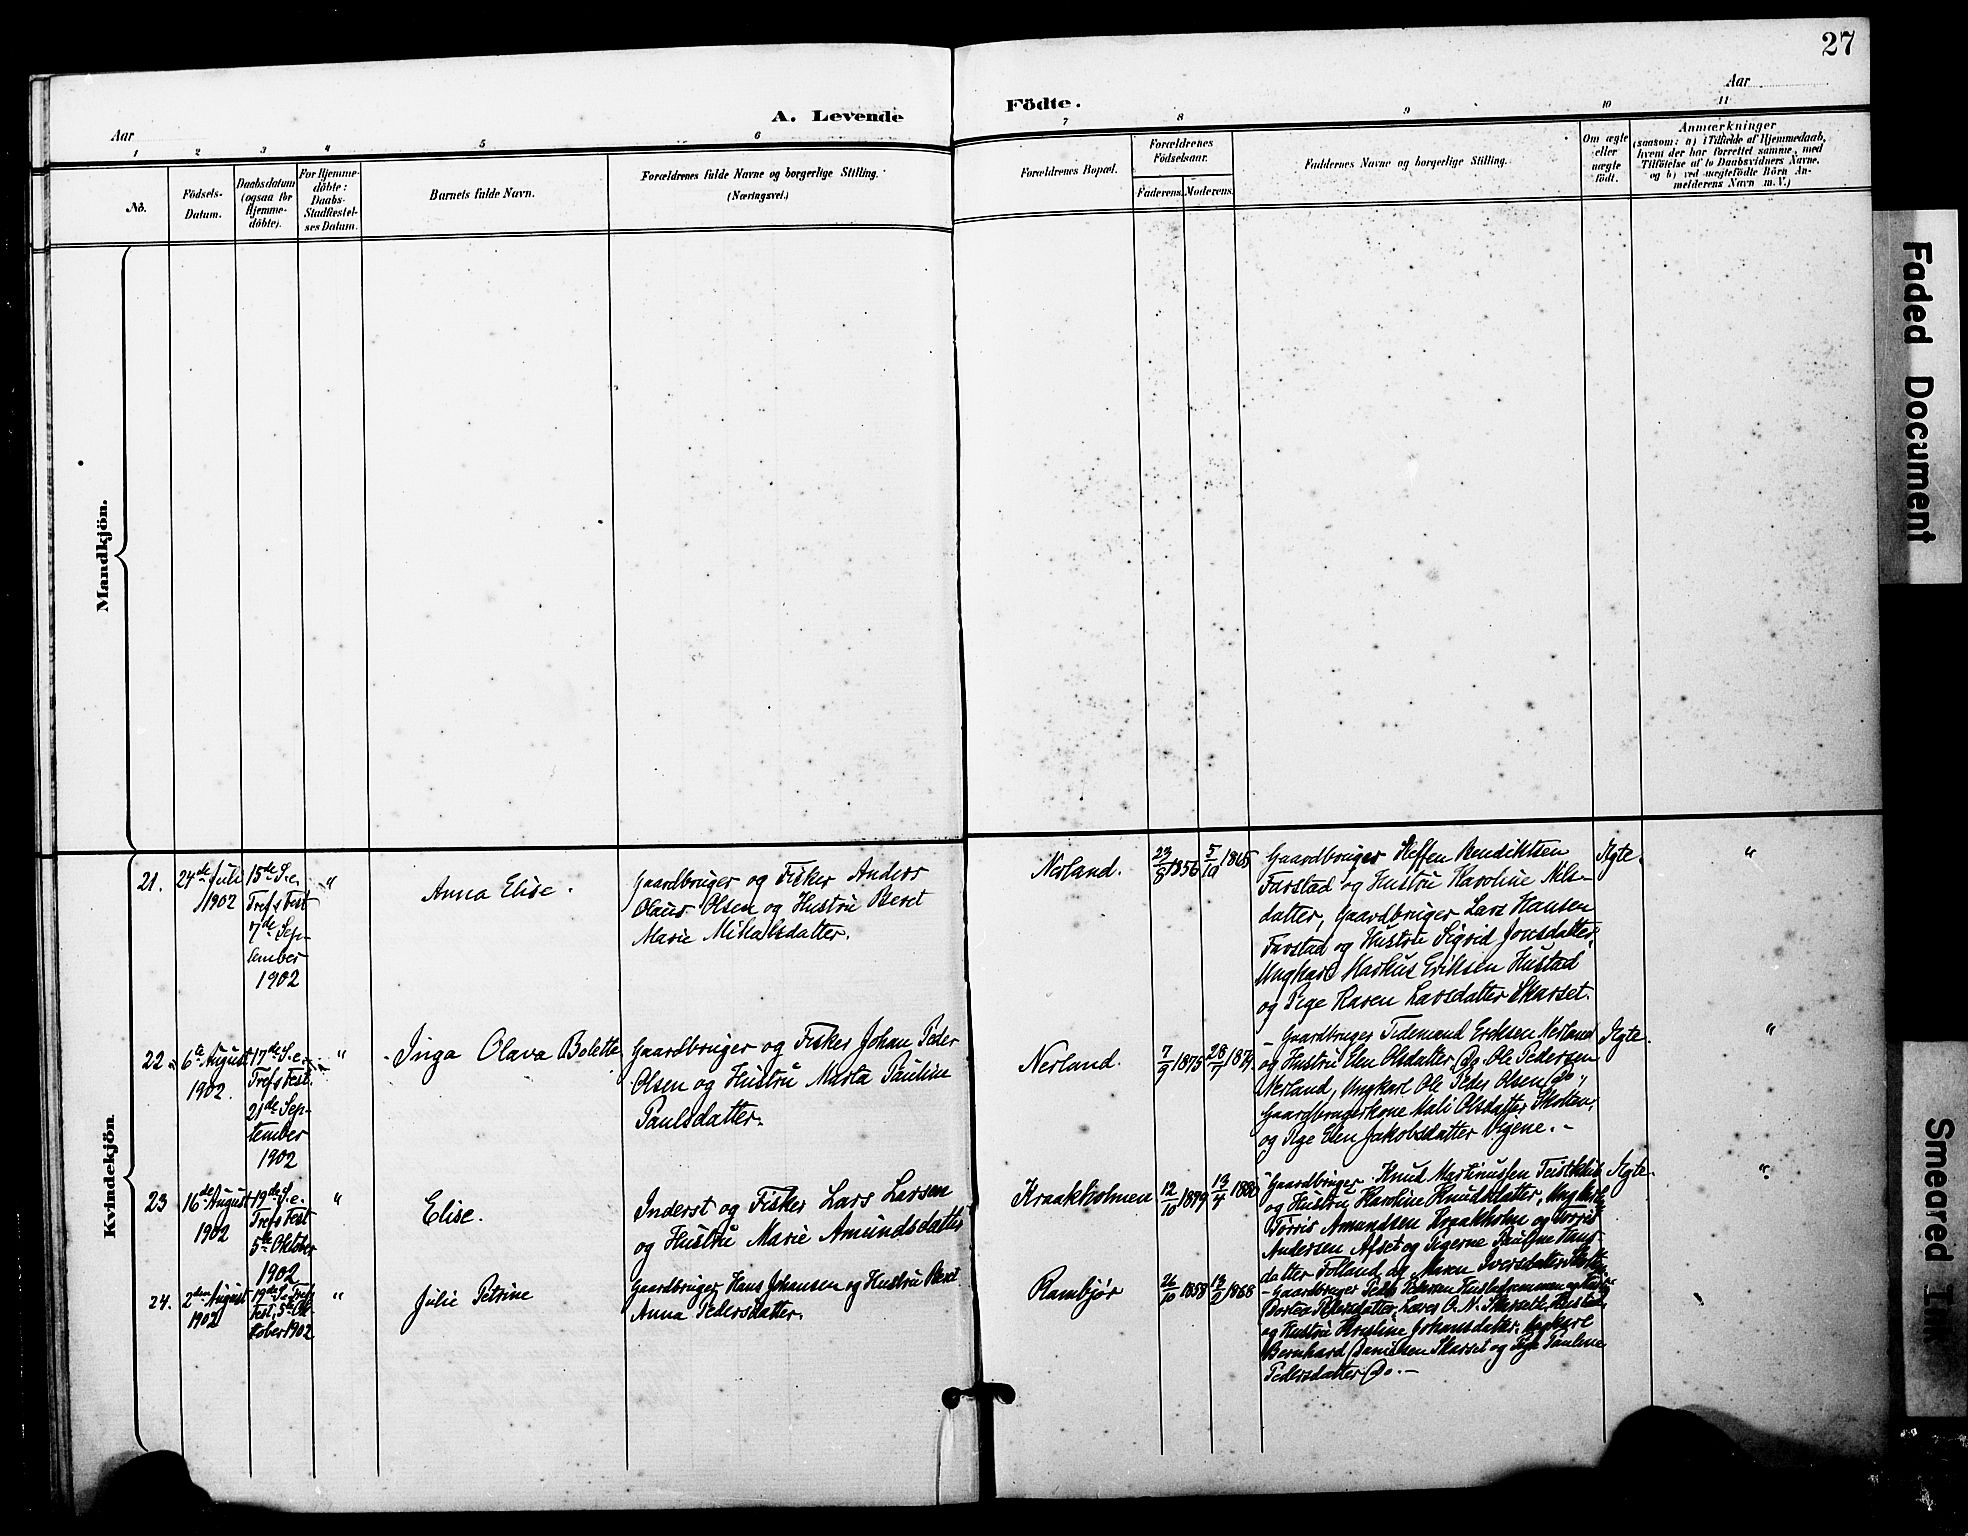 27
A. Levende
Födte.
Aar
Aar
1 2 3 4 5 6 7 8 9 10 11
No.
Födsels-
Datum.
Daabsdatum
(ogsaa for
Hjemme-
döbte).
For Hjemme-
döbte:
Daabs-
Stadfæstel-
ses Datum.
Barnets fulde Navn.
Forældrenes fulde Navne og borgerlige Stilling.
(Næringsvei.)
Forældrenes Bopæl.
Forældrenes
Födselsaar.
Faderens. Moderens.
Faddernes Navne og borgerlige Stilling.
Om ægte
eller
uægte
födt.
Anmærkninger
(saasom: a) i Tilfælde af Hjemmedaab,
hvem der har forrettet samme, med
Tilföielse af to Daabsvidners Navne,
og b) ved uægtefödte Börn An-
melderens Navn m.V.)
Mandkjön.
Kvindekjön
21.
24de Juli
1902
15de S. e.
Tref. Fest
7de Sep-
tember
1902
"
Anna Elise.
Gaardbruger og Fisker Anders
Olaus Olsen og Hustru Beret
Marie Mikalsdatter.
Nerland.
23/8 1856
5/10 1865
Gaardbruger Steffen Bendiktsen
Farstad og Hustru Karoline Nils-
datter, Gaardbruger Lars Hansen
Farstad og Hustru Sigrid Jonsdatter,
Ungkarl Markus Eriksen Hustad
og Pige Karen Larsdatter Skarset.
Ægte.
"
22.
6te August
1902.
17de S. e.
Tref. Fest.
21de Sep-
tember
1902
"
Inga Olava Bolette
Gaardbruger og Fisker Johan Peder
Olsen og Hustru Marta Pauline
Paulsdatter.
Nerland.
7/9 1875
28/7 1879.
- Gaardbruger Tidemand Eriksen Nerland
og Hustru Elen Olsdatter Do, Ole Pedersen
Nerland, Ungkarl Ole Peder Olsen Do,
Gaardbrugerkone Mali Olsdatter Skotten,
og Pige Elen Jakobsdatter Vejene. -
Ægte.
"
23
16de August
1902
19de S. e.
Tref. Fest
5te Oktober
1902
"
Elise.
Inderst og Fisker Lars Larsen
og Hustru Marie Amundsdatter
Kraakholmen
12/10 1879
13/4 1880
Gaardbruger Knud Martinussen Teistklub
og Hustru Karoline Knudsdatter, Ungkarl
Tørris Amundsen Kraakholm og Torris
Andersen Afset og Pigerne Pauline Hans-
datter Folland og Maren Iversdatter Skotten
Ægte.
"
24.
2den August
1902
19de S. e. Tref.
Fest, 5te Ok-
tober 1902
"
Julie Petrine
Gaardbruger Hans Johansen og Hustru Beret
Anna Pedersdatter.
Rambjør
26/10 1858
13/2 1868
- Gaardbruger Peder Pedersen
Dortea Pedersdatter, Lærer O. N. Skarseth,
og Hustru Kristine Johansdatter, Ungkarl
Bernhard Danielsen Skarset og Pige Pauline
Pedersdatter Do. -
Faded Document
Smeared Ink